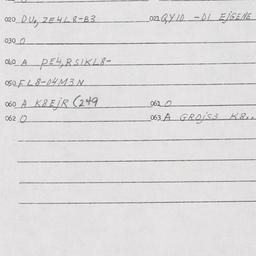 020 DU, ZE4L8-B3 021 QYID -DI EJSENE
030 O
040 A PE4,RSIKL8-
050 FL8-O4M3N
060 A K8EJR (249 061 O
062 O 063 A GROJS3 K8..